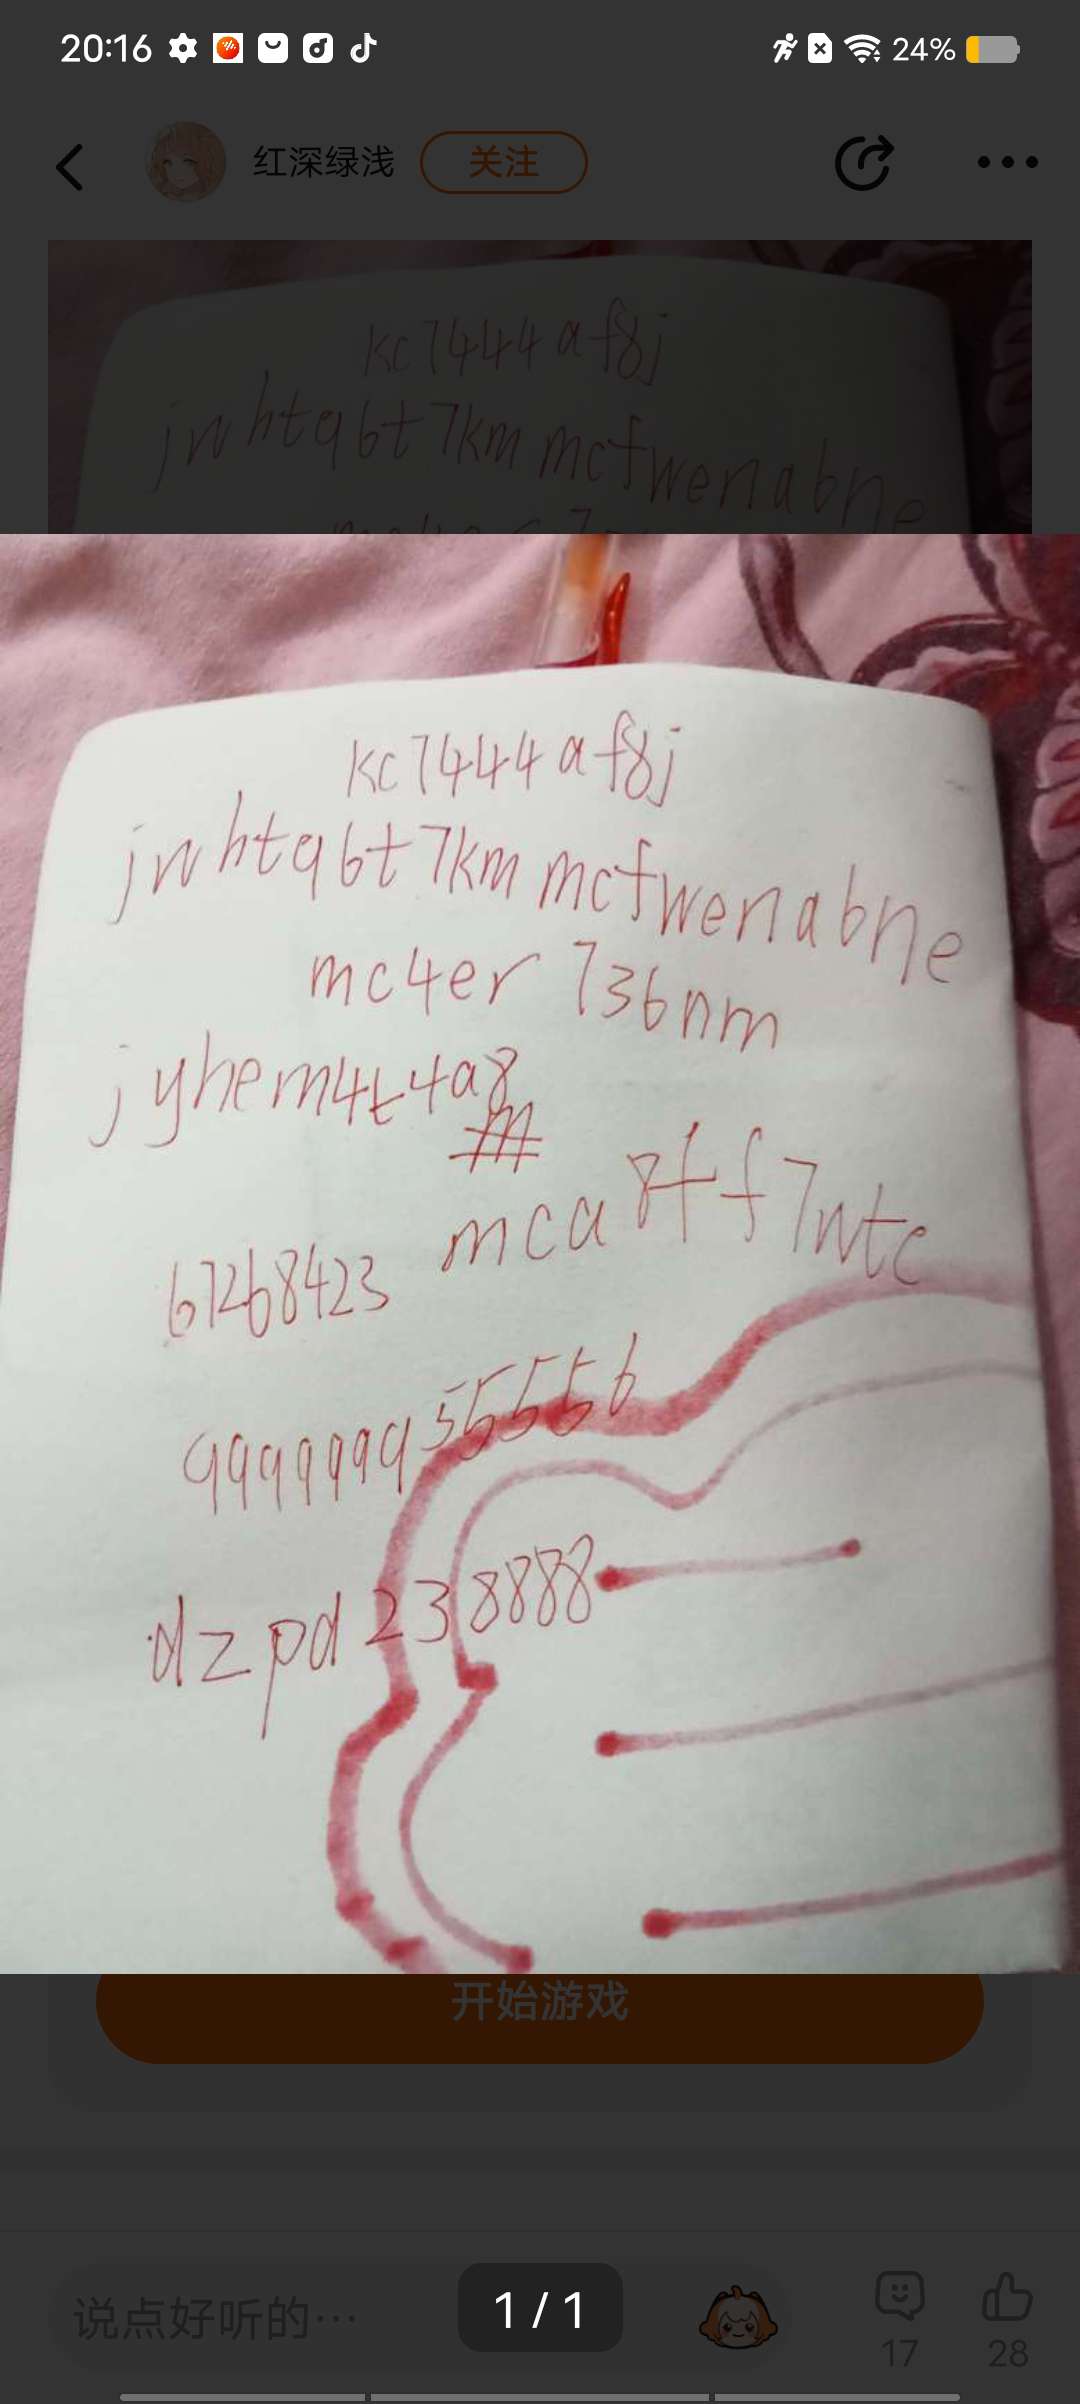 20:16 24%
红深绿浅 关注
kc7444af8j
jwhtq6t7km mcfwenabne
kc7444af8j
jwhtq6t7km mcfwenabne
mc4er 736nm
jyhem4t4a8
mca8ff7wtc
67268423
9999999555556
dzpd238888
开始游戏
说点好听的… 1 / 1 17 28